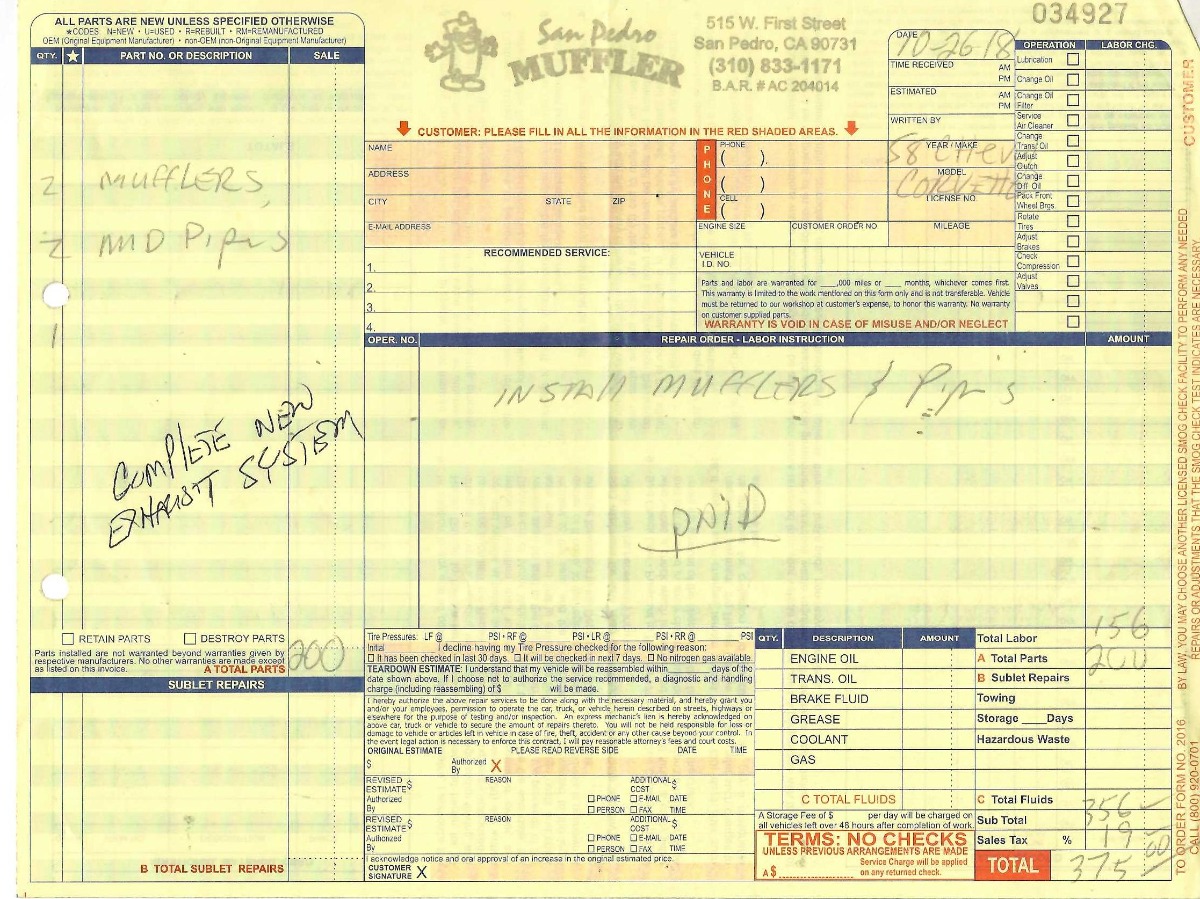 ALL PARTS ARE NEW UNLESS SPECIFIED OTHERWISE
★CODES N=NEW • U=USED • R=REBUILT • RM=REMANUFACTURED
OEM (Original Equipment Manufacturer) • non-OEM (non-Original Equipment Manufacturer)
QTY. ★ PART NO. OR DESCRIPTION SALE
2 MUFFLERS,
2 MID Pipes
1
COMPLETE NEW
EXHAUST SYSTEM
RETAIN PARTS DESTROY PARTS
Parts installed are not warranted beyond warranties given by
respective manufacturers. No other warranties are made except
as listed on this invoice.
A TOTAL PARTS 200
SUBLET REPAIRS
B TOTAL SUBLET REPAIRS
San Pedro
MUFFLER
515 W. First Street
San Pedro, CA 90731
(310) 833-1171
B.A.R. # AC 204014
034927
DATE 10-26-18
TIME RECEIVED AM PM
ESTIMATED AM PM
WRITTEN BY
YEAR / MAKE 58 CHEV
MODEL CORVETTE
LICENSE NO.
MILEAGE
CUSTOMER: PLEASE FILL IN ALL THE INFORMATION IN THE RED SHADED AREAS.
NAME
ADDRESS
CITY STATE ZIP
E-MAIL ADDRESS
PHONE
PHONE ( )
( )
CELL ( )
ENGINE SIZE CUSTOMER ORDER NO
RECOMMENDED SERVICE:
1.
2.
3.
4.
VEHICLE
I.D. NO.
Parts and labor are warranted for ____,000 miles or ____ months, whichever comes first.
This warranty is limited to the work mentioned on this form only and is not transferable. Vehicle
must be returned to our workshop at customer's expense, to honor this warranty. No warranty
on customer supplied parts.
WARRANTY IS VOID IN CASE OF MISUSE AND/OR NEGLECT
OPERATION LABOR CHG.
Lubrication
Change Oil
Change Oil Filter
Service Air Cleaner
Change Trans/ Oil
Adjust Clutch
Change Diff. Oil
Pack Front Wheel Brgs.
Rotate Tires
Adjust Brakes
Check Compression
Adjust Valves
OPER. NO. REPAIR ORDER - LABOR INSTRUCTION AMOUNT
INSTALL MUFFLERS & Pipes
PAID
Tire Pressures: LF @ PSI • RF @ PSI • LR @ PSI • RR @ PSI
Initial I decline having my Tire Pressure checked for the following reason:
It has been checked in last 30 days. It will be checked in next 7 days. No nitrogen gas available.
TEARDOWN ESTIMATE: I understand that my vehicle will be reassembled within ____ days of the
date shown above. If I choose not to authorize the service recommended, a diagnostic and handling
charge (including reassembling) of $ will be made.
I hereby authorize the above repair services to be done along with the necessary material, and hereby grant you
and/or your employees, permission to operate the car, truck, or vehicle herein described on streets, highways or
elsewhere for the purpose of testing and/or inspection. An express mechanic's lien is hereby acknowledged on
above car, truck or vehicle to secure the amount of repairs thereto. You will not be held responsible for loss or
damage to vehicle or articles left in vehicle in case of fire, theft, accident or any other cause beyond your control. In
the event legal action is necessary to enforce this contract, I will pay reasonable attorney's fees and court costs.
ORIGINAL ESTIMATE PLEASE READ REVERSE SIDE DATE TIME
$ Authorized By X
REVISED ESTIMATE $ REASON ADDITIONAL COST $
Authorized By PHONE E-MAIL DATE
PERSON FAX TIME
REVISED ESTIMATE $ REASON ADDITIONAL COST $
Authorized By PHONE E-MAIL DATE
PERSON FAX TIME
I acknowledge notice and oral approval of an increase in the original estimated price.
CUSTOMER SIGNATURE X
QTY. DESCRIPTION AMOUNT
ENGINE OIL
TRANS. OIL
BRAKE FLUID
GREASE
COOLANT
GAS
C TOTAL FLUIDS
A Storage Fee of $ per day will be charged on
all vehicles left over 48 hours after completion of work.
TERMS: NO CHECKS
UNLESS PREVIOUS ARRANGEMENTS ARE MADE
A $ Service Charge will be applied
on any returned check.
Total Labor 156
A Total Parts 200
B Sublet Repairs
Towing
Storage ____Days
Hazardous Waste
C Total Fluids
Sub Total 356
Sales Tax % 19
TOTAL 375 00
CUSTOMER
BY LAW, YOU MAY CHOOSE ANOTHER LICENSED SMOG CHECK FACILITY TO PERFORM ANY NEEDED
REPAIRS OR ADJUSTMENTS THAT THE SMOG CHECK TEST INDICATES ARE NECESSARY
TO ORDER FORM NO. 2016
CALL (800) 920-0701